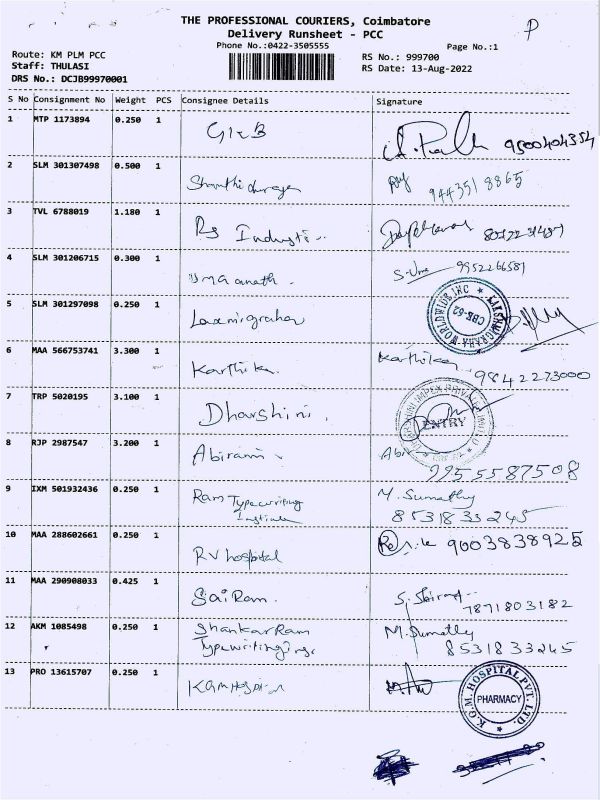 THE PROFESSIONAL COURIERS, Coimbatore
Delivery Runsheet - PCC
P
Phone No.:0422-3505555
Page No.:1
Route: KM PLM PCC
RS No.: 999700
Staff: THULASI
RS Date: 13-Aug-2022
DRS No.: DCJB99970001
S No Consignment No Weight PCS Consignee Details Signature
1 MTP 1173894 0.250 1
9500404354
2 SLM 301307498 0.500 1
9443518865
3 TVL 6788019 1.180 1
Rs
4 SLM 301206715 0.300 1
Umaganath
S. Uma 9952266581
5 SLM 301297098 0.250 1
Laxmigraha
LAKSHMIGRAHA WORLDWIDE INC
CBE-62
6 MAA 566753741 3.300 1
Karthika
Karthika
9842273000
7 TRP 5020195 3.100 1
Dharshini
ENTRY
8 RJP 2987547 3.200 1
Abirami
Abi
9955587508
9 IXM 501932436 0.250 1
Ram Typewriting
M. Sumathy
8531833245
10 MAA 288602661 0.250 1
RV hospital
9003838925
11 MAA 290908033 0.425 1
SaiRam
7871803182
12 AKM 1085498 0.250 1
Shankar Ram
Typewriting
M. Sumathy
8531833245
13 PRO 13615707 0.250 1
K.G.M. HOSPITAL PVT. LTD.
PHARMACY